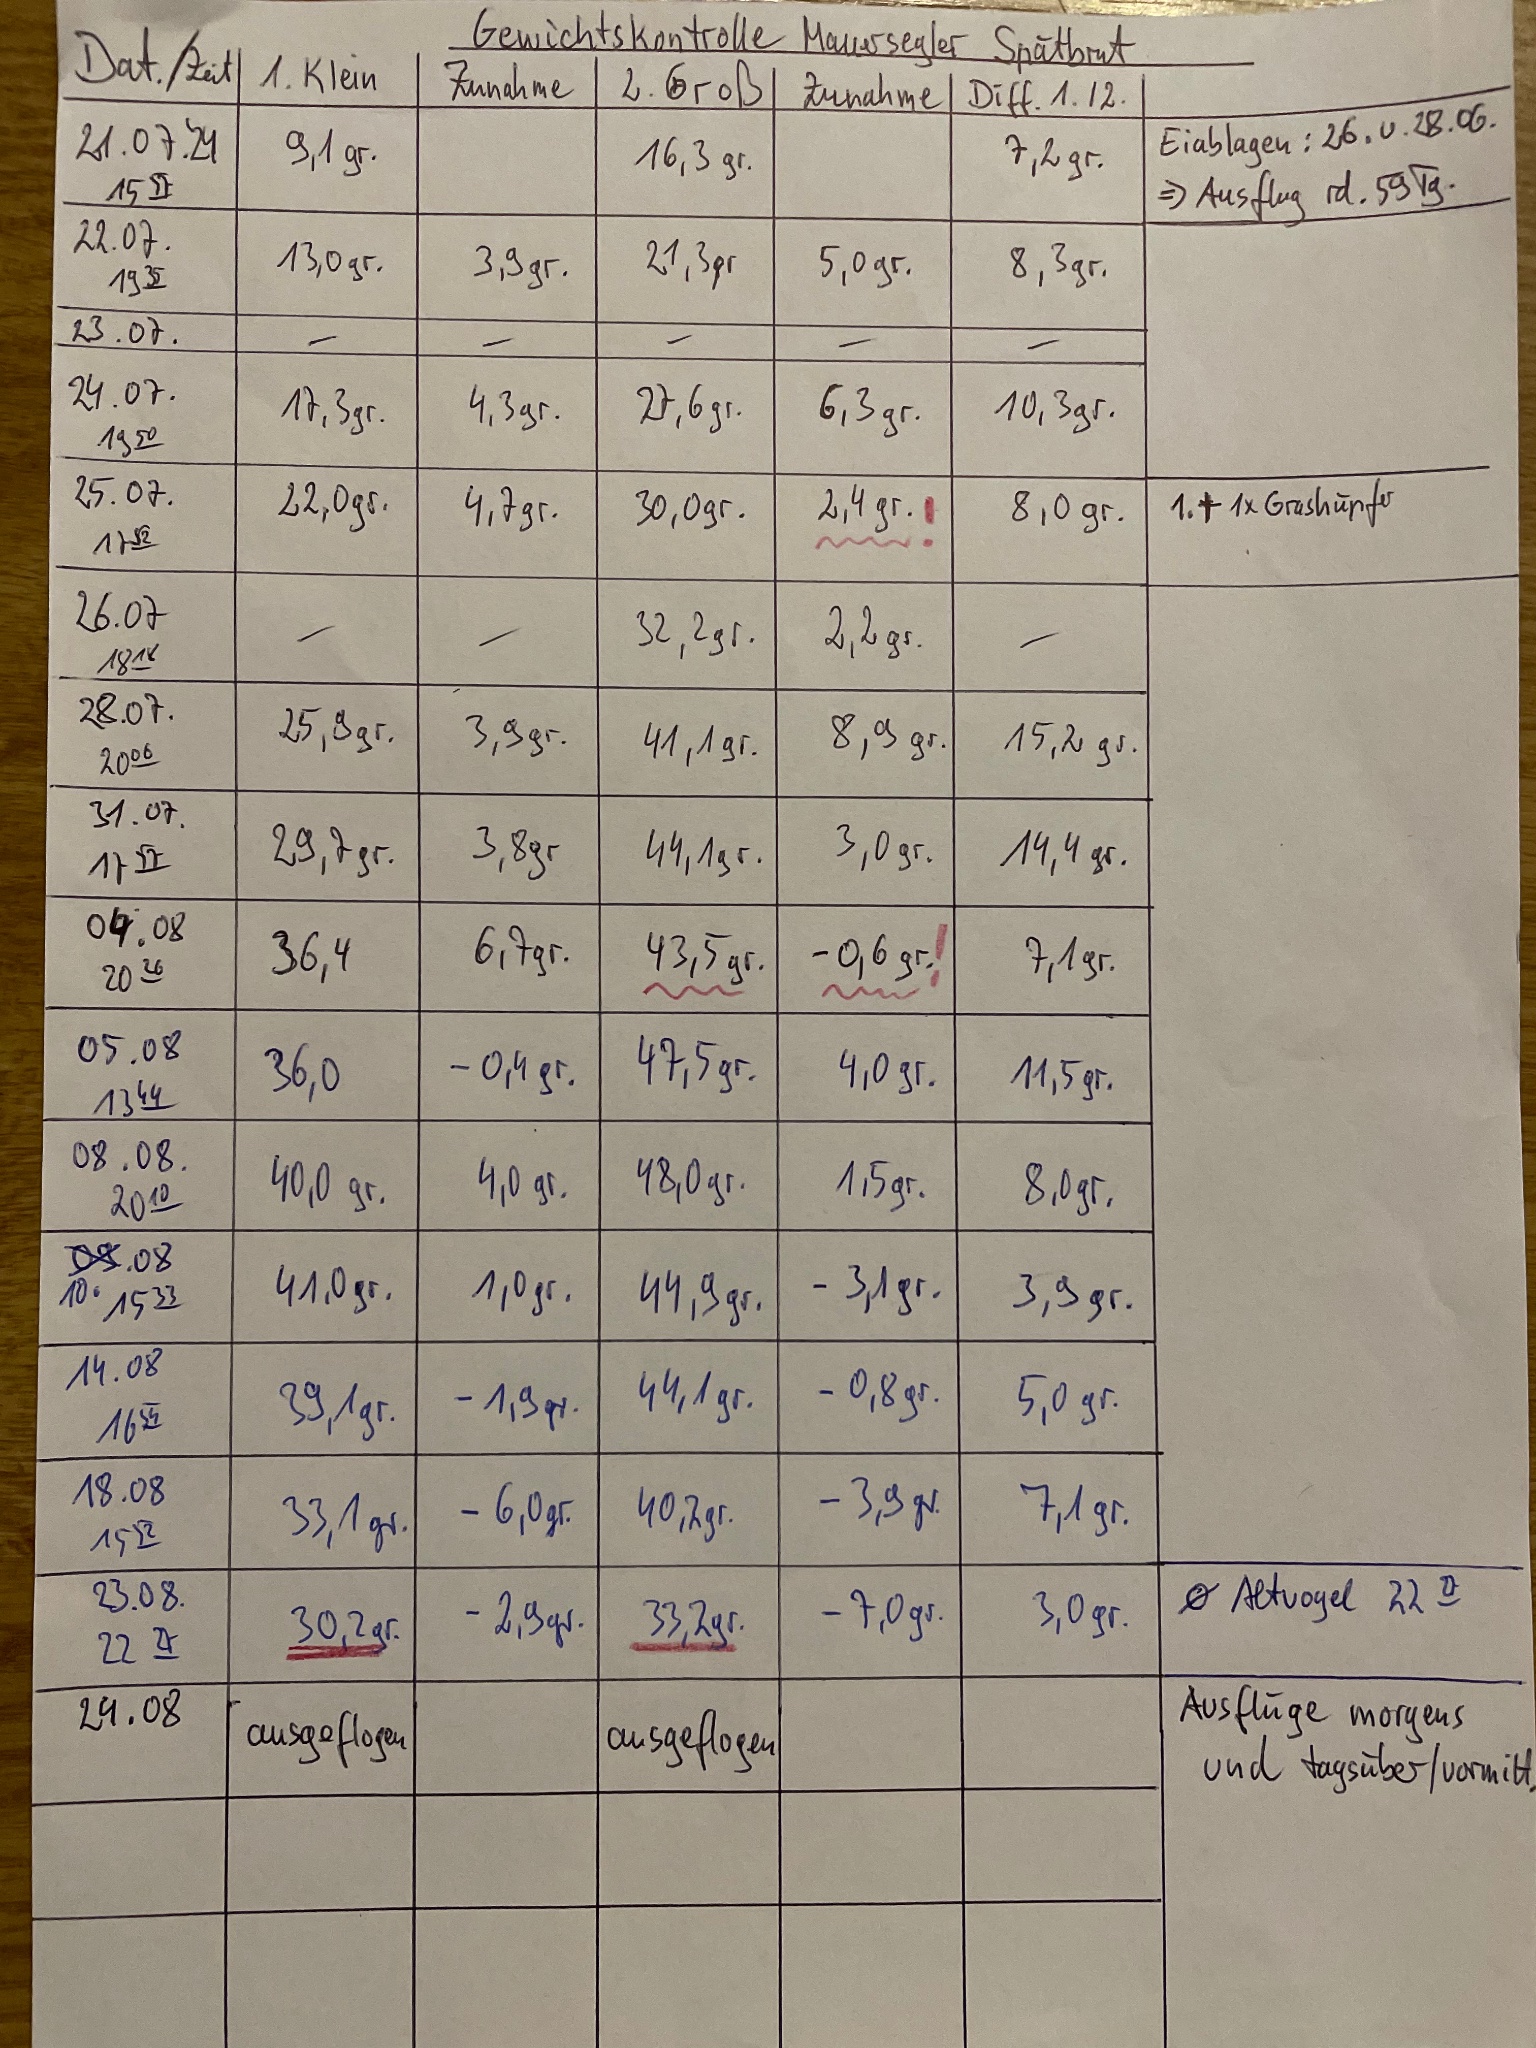 Gewichtskontrolle Mauersegler Spätbrut
Dat./Zeit 1. Klein Zunahme 2. Groß Zunahme Diff. 1./2.
21.07.24 9,1 gr. 16,3 gr. 7,2 gr. Eiablagen: 26. u. 28.06.
15 => Ausflug rd. 59 Tg.
22.07. 13,0 gr. 3,9 gr. 21,3 gr 5,0 gr. 8,3 gr.
19 35
23.07. – – – – –
24.07. 17,3 gr. 4,3 gr. 27,6 gr. 6,3 gr. 10,3 gr.
19 50
25.07. 22,0 gr. 4,7 gr. 30,0 gr. 2,4 gr.! 8,0 gr. 1. + 1x Grashüpfer
17 52
26.07 – – 32,2 gr. 2,2 gr. –
18 18
28.07. 25,9 gr. 3,9 gr. 41,1 gr. 8,9 gr. 15,2 gr.
20 06
31.07. 29,7 gr. 3,8 gr 44,1 gr. 3,0 gr. 14,4 gr.
17 57
04.08 36,4 6,7 gr. 43,5 gr. -0,6 gr.! 7,1 gr.
20 26
05.08 36,0 -0,4 gr. 47,5 gr. 4,0 gr. 11,5 gr.
13 44
08.08. 40,0 gr. 4,0 gr. 48,0 gr. 1,5 gr. 8,0 gr.
20 10
09.08 41,0 gr. 1,0 gr. 44,9 gr. -3,1 gr. 3,9 gr.
10. 15 33
14.08 39,1 gr. -1,9 gr. 44,1 gr. -0,8 gr. 5,0 gr.
16 54
18.08 33,1 gr. -6,0 gr. 40,2 gr. -3,9 gr. 7,1 gr.
15 52
23.08. 30,2 gr. -2,9 gr. 33,2 gr. -7,0 gr. 3,0 gr. Ø Altvogel 22
22
24.08 ausgeflogen ausgeflogen Ausflüge morgens
und tagsüber/vormitt.